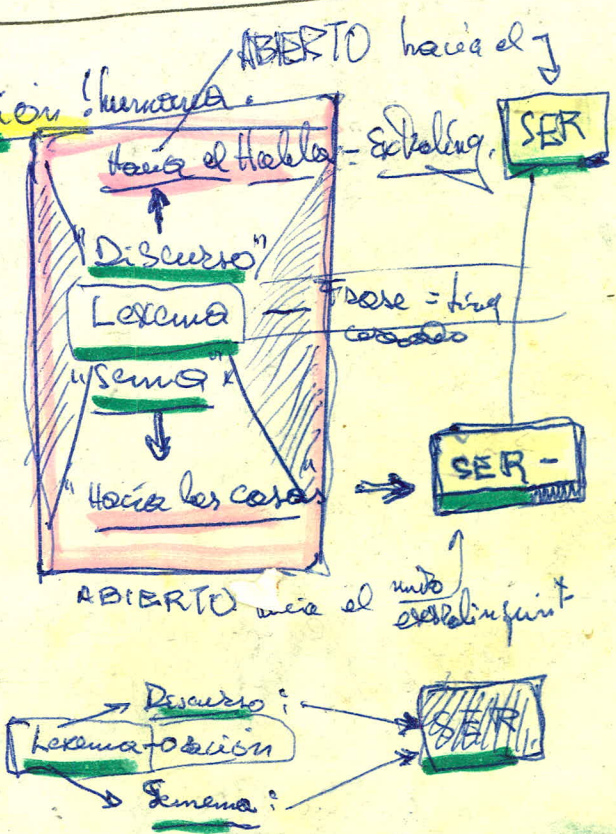 ABIERTO hacia el
ión humana.
SER
Hacia el Habla - Extraling.
"Discurso"
Lexema — Frase =
cerrado
"Sema"
SER -
"Hacia las cosas"
ABIERTO hacia el mudo
extralinguist
Discurso :
SER
Lexema-oación
Semema :